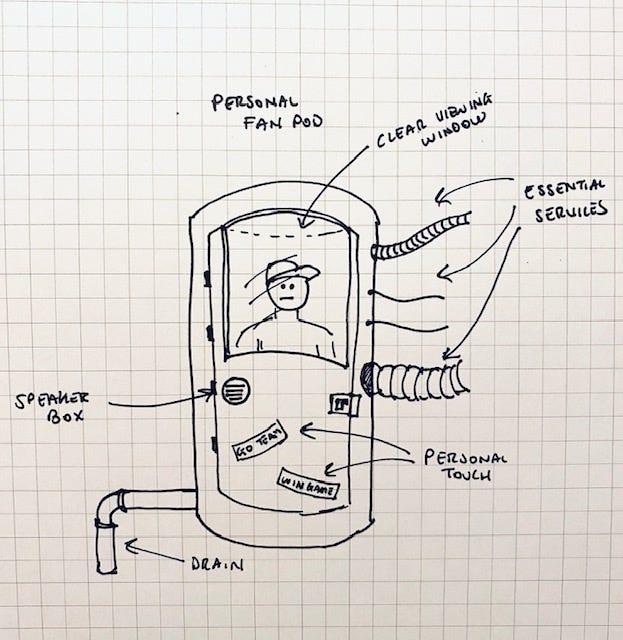 PERSONAL
FAN POD
CLEAR VIEWING
WINDOW
ESSENTIAL
SERVICES
SPEAKER
BOX
GO TEAM
WIN GAME
PERSONAL
TOUCH
DRAIN